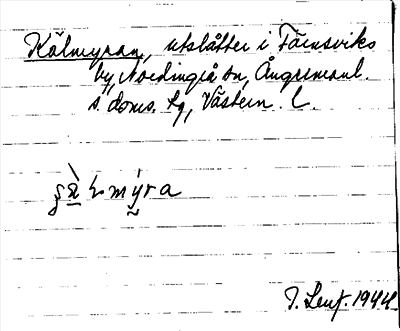 Kälmyran, utslåtter i Fäensviks
by, Nordingrå sn, Ångermanl.
s. doms. tg, Västern. l.
mýra
1944.